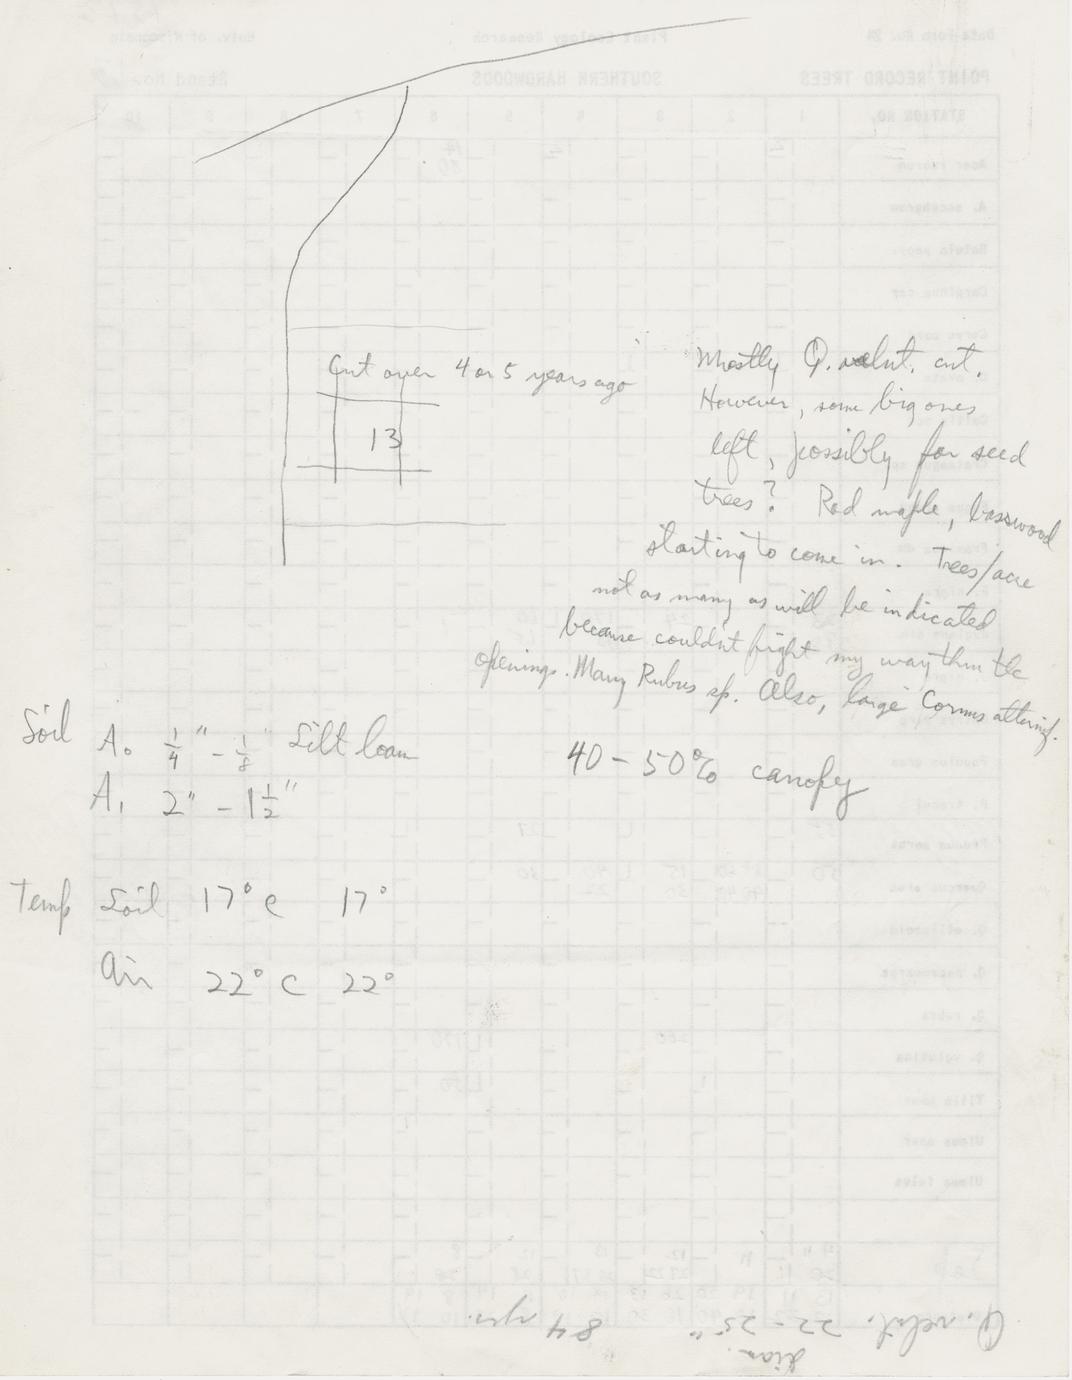 Cut over 4 or 5 years ago
13
Mostly Q. velut. cut.
However, some big ones
left, possibly for seed
trees? Red maple, basswood
starting to come in. Trees/acre
not as many as will be indicated
because couldn't fight my way thru the
openings. Many Rubus sp. Also, large Cornus alternif.
40 - 50% canopy
Soil A₀ 1/4" - 1/8" Silt loam
A₁ 2" - 1 1/2"
Temp Soil 17° C 17°
Air 22° C 22°
Q. velut. 22 - 25" diam. 84 yrs.